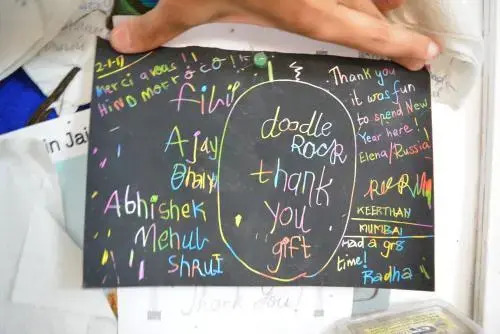 in Jai
2-1-17
Merci a vous!!
HIND MOROCCO!!
Ajay
Abhishek
Mehul
SHRUI
doodle
ROCK
thank
you
gift
Thank you
it was fun
to spend New
Year here!
Elena/Russia
KEERTHAN
MUMBAI
Had a gr8
time!
Radha
Thank You!